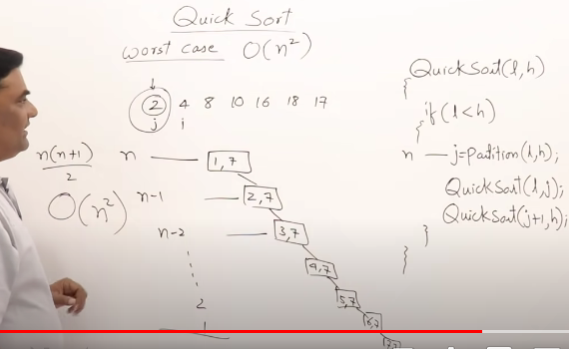 Quick Sort
worst case O(n²)
2 4 8 10 16 18 17
j i
n(n+1)
2
O(n²)
n
1,7
n-1
2,7
n-2
3,7
4,7
5,7
6,7
2
1
QuickSort(l,h)
{
if(l<h)
{
n — j=partition(l,h);
QuickSort(l,j);
QuickSort(j+1,h);
}
}